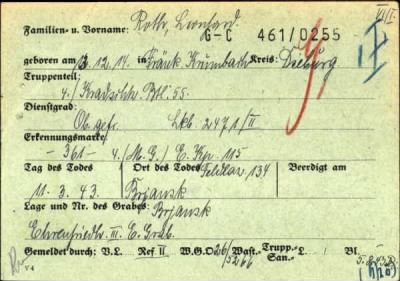 VII/I.
Familien- u. Vorname: Roth, Leonhard
G-C 461/0255
geboren am 3.12.14. in Fränk. Krumbach Kreis: Dieburg
Truppenteil:
4./Kradschtz. Btl. 55
Dienstgrad:
Ob. gefr. Lkb. 2471/II
Erkennungsmarke
-361- 4./(M.G.) E. Kp. 115
Tag des Todes Ort des Todes Feldlaz. 134 Beerdigt am
11.3.43. Brjansk
Lage und Nr. des Grabes: Brjansk
Ehrenfriedh. III. E. Grab.
Gemeldet durch: V.L. Ref II W.G.O 26/5266 Wast.- Trupp.- San.- L Bl
V 4